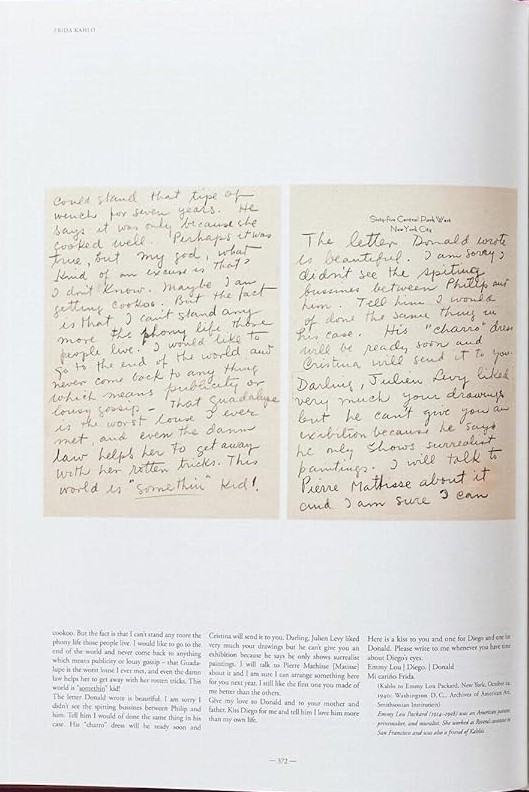 FRIDA KAHLO
could stand that tipe of
wench for seven years. He
says it was only because she
cooked well. Perhaps it was
true, but my god, what
kind of an excuse is that?
I don't know. Maybe I am
getting cookoo. But the fact
is that I can't stand any
more the phony life those
people live. I would like to
go to the end of the world and
never come back to any thing
which means publicity or
lousy gossip – That Guadalupe
is the worst louse I ever
met, and even the damn
law helps her to get away
with her rotten tricks. This
world is "somethin" kid!
Sixty-five Central Park West
New York City
The letter Donald wrote
is beautiful. I am sorry I
didn't see the spiting
bussines between Philip and
him. Tell him I would
of done the same thing in
his case. His "charro" dress
will be ready soon and
Cristina will send it to you.
Darling, Julien Levy liked
very much your drawings
but he can't give you an
exibition because he says
he only shows surrealist
paintings. I will talk to
Pierre Mathisse about it
and I am sure I can
cookoo. But the fact is that I can't stand any more the
phony life those people live. I would like to go to the
end of the world and never come back to anything
which means publicity or lousy gossip – that Guada-
lupe is the worst louse I ever met, and even the damn
law helps her to get away with her rotten tricks. This
world is "somethin" kid!
The letter Donald wrote is beautiful. I am sorry I
didn't see the spitting bussines between Philip and
him. Tell him I would of done the same thing in his
case. His "charro" dress will be ready soon and
Cristina will send it to you. Darling, Julien Levy liked
very much your drawings but he can't give you an
exhibition because he says he only shows surrealist
paintings. I will talk to Pierre Mathisse [Matisse]
about it and I am sure I can arrange something here
for you next year. I still like the first one you made of
me better than the others.
Give my love to Donald and to your mother and
father. Kiss Diego for me and tell him I love him more
than my own life.
Here is a kiss to you and one for Diego and one for
Donald. Please write to me whenever you have time
about Diego's eyes.
Emmy Lou | Diego. | Donald
Mi cariño Frida.
(Kahlo to Emmy Lou Packard, New York, October 24,
1940; Washington D. C., Archives of American Art,
Smithsonian Institution)
Emmy Lou Packard (1914–1998) was an American painter,
printmaker, and muralist. She worked as Rivera's assistant in
San Francisco and was also a friend of Kahlo's.
— 372 —